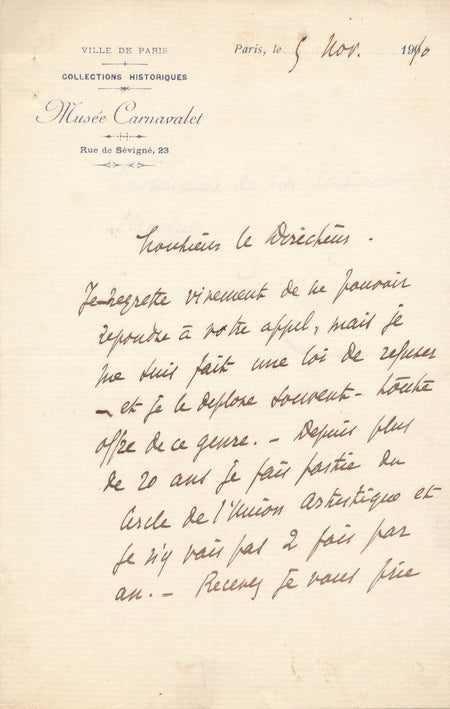 VILLE DE PARIS
COLLECTIONS HISTORIQUES
Musée Carnavalet
Rue de Sévigné, 23
Paris, le 5 Nov. 1910
Monsieur le Directeur.
Je regrette vivement de ne pouvoir
répondre à votre appel, mais je
me suis fait une loi de refuser
– et je le déplore souvent – toute
offre de ce genre. – Depuis plus
de 20 ans je fais partie du
Cercle de l'Union Artistique et
je n'y vais pas 2 fois par
an. – Recevez je vous prie